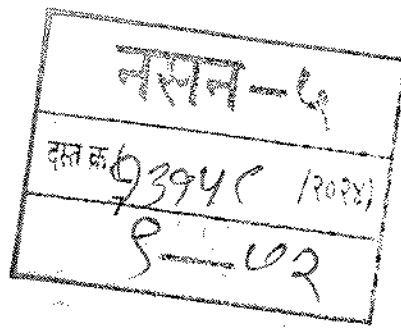 नसन-५
दस्त क्र. १३१५८ /२०२४)
९ — ७२